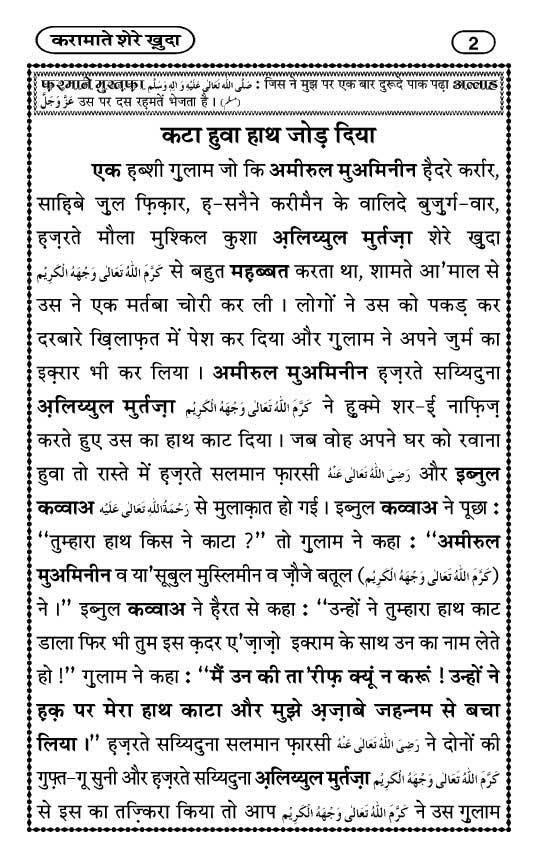 करामाते शेरे ख़ुदा
2
फ़रमाने मुस्तफ़ा صَلَّى اللّٰهُ تَعَالٰى عَلَيْهِ وَاٰلِهٖ وَسَلَّم : जिस ने मुझ पर एक बार दुरूदे पाक पढ़ा अल्लाह
عَزَّوَجَلَّ उस पर दस रहमतें भेजता है । (مسلم)
कटा हुवा हाथ जोड़ दिया
एक हब्शी गुलाम जो कि अमीरुल मुअमिनीन हैदरे कर्रार,
साहिबे जुल फ़िक़ार, ह-सनैने करीमैन के वालिदे बुज़ुर्ग-वार,
हज़रते मौला मुश्किल कुशा अ़लिय्युल मुर्तज़ा शेरे ख़ुदा
كَرَّمَ اللّٰهُ تَعَالٰى وَجْهَهُ الْكَرِيْم से बहुत महब्बत करता था, शामते आ'माल से
उस ने एक मर्तबा चोरी कर ली । लोगों ने उस को पकड़ कर
दरबारे ख़िलाफ़त में पेश कर दिया और गुलाम ने अपने जुर्म का
इक़्रार भी कर लिया । अमीरुल मुअमिनीन हज़रते सय्यिदुना
अ़लिय्युल मुर्तज़ा كَرَّمَ اللّٰهُ تَعَالٰى وَجْهَهُ الْكَرِيْم ने हुक्मे शर-ई नाफ़िज़
करते हुए उस का हाथ काट दिया । जब वोह अपने घर को रवाना
हुवा तो रास्ते में हज़रते सलमान फ़ारसी رَضِىَ اللّٰهُ تَعَالٰى عَنْهُ और इब्नुल
कव्वाअ رَحْمَةُ اللّٰهِ تَعَالٰى عَلَيْه से मुलाक़ात हो गई । इब्नुल कव्वाअ ने पूछा :
“तुम्हारा हाथ किस ने काटा ?” तो गुलाम ने कहा : “अमीरुल
मुअमिनीन व या'सूबुल मुस्लिमीन व ज़ौजे बतूल (كَرَّمَ اللّٰهُ تَعَالٰى وَجْهَهُ الْكَرِيْم)
ने ।” इब्नुल कव्वाअ ने हैरत से कहा : “उन्हों ने तुम्हारा हाथ काट
डाला फिर भी तुम इस क़दर ए'ज़ाज़ो इक्राम के साथ उन का नाम लेते
हो !” गुलाम ने कहा : “मैं उन की ता'रीफ़ क्यूं न करूं ! उन्हों ने
हक़ पर मेरा हाथ काटा और मुझे अ़ज़ाबे जहन्नम से बचा
लिया ।” हज़रते सय्यिदुना सलमान फ़ारसी رَضِىَ اللّٰهُ تَعَالٰى عَنْهُ ने दोनों की
गुफ़्त-गू सुनी और हज़रते सय्यिदुना अ़लिय्युल मुर्तज़ा كَرَّمَ اللّٰهُ تَعَالٰى وَجْهَهُ الْكَرِيْم
से इस का तज़्किरा किया तो आप كَرَّمَ اللّٰهُ تَعَالٰى وَجْهَهُ الْكَرِيْم ने उस गुलाम